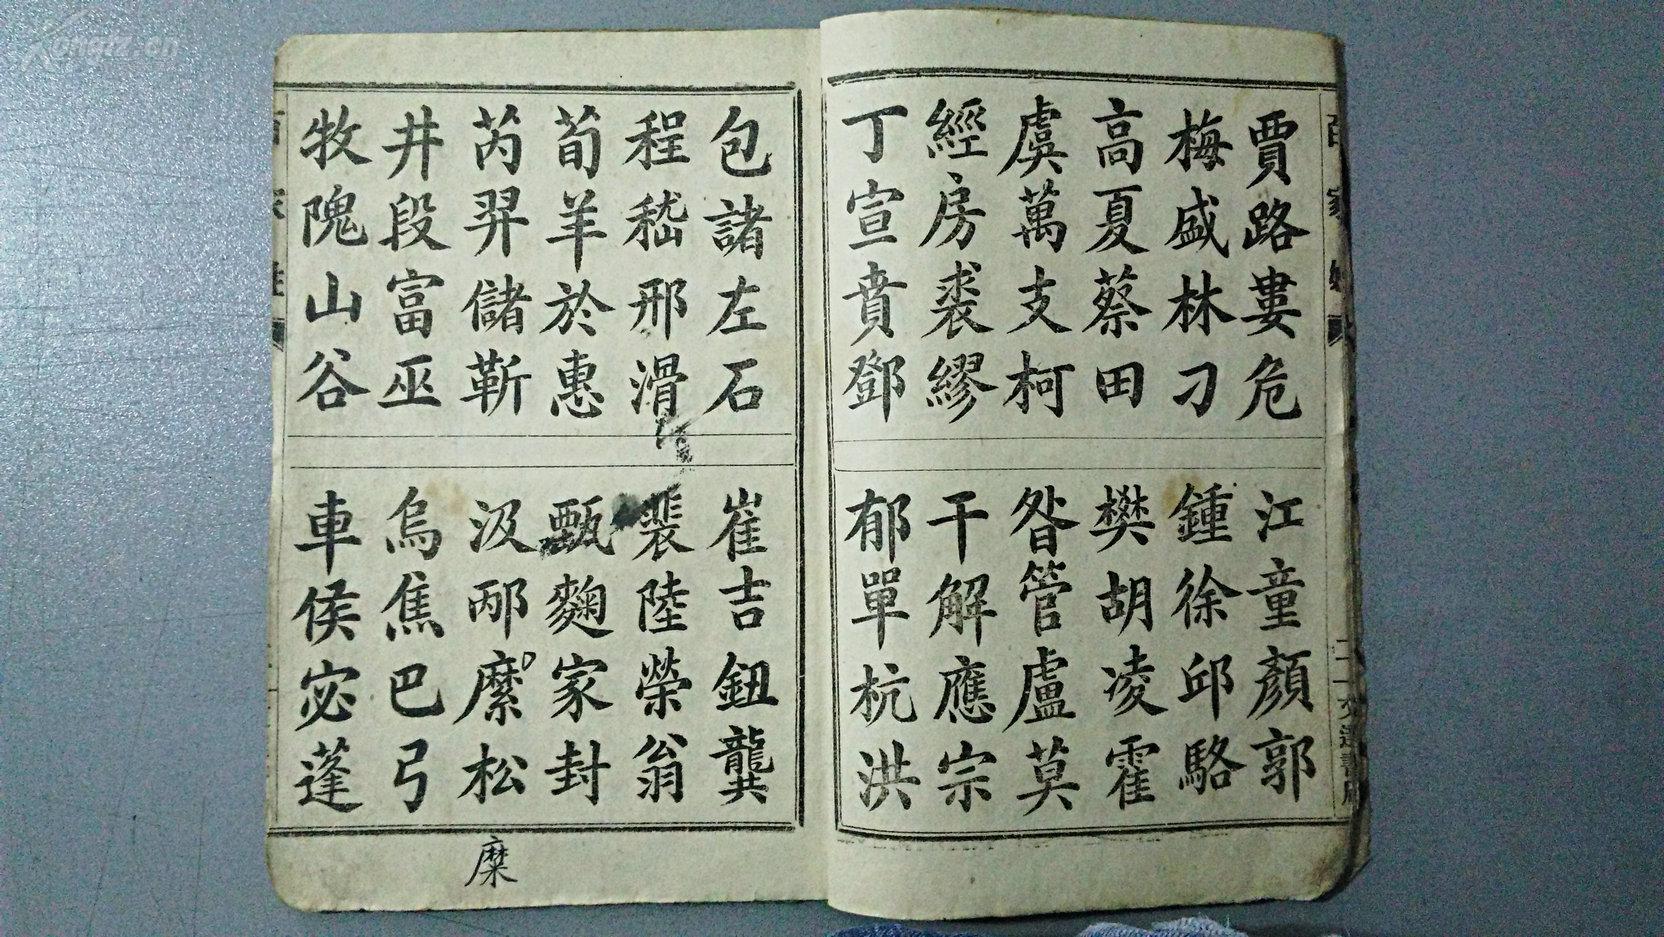 Kongfz.cn
百家姓
賈路婁危
江童顏郭
梅盛林刁
鍾徐邱駱
高夏蔡田
樊胡凌霍
虞萬支柯
昝管盧莫
經房裘繆
干解應宗
丁宣賁鄧
郁單杭洪
包諸左石
崔吉鈕龔
程嵇邢滑
裴陸榮翁
荀羊於惠
甄麴家封
芮羿儲靳
汲邴縻松
糜
井段富巫
烏焦巴弓
牧隗山谷
車侯宓蓬